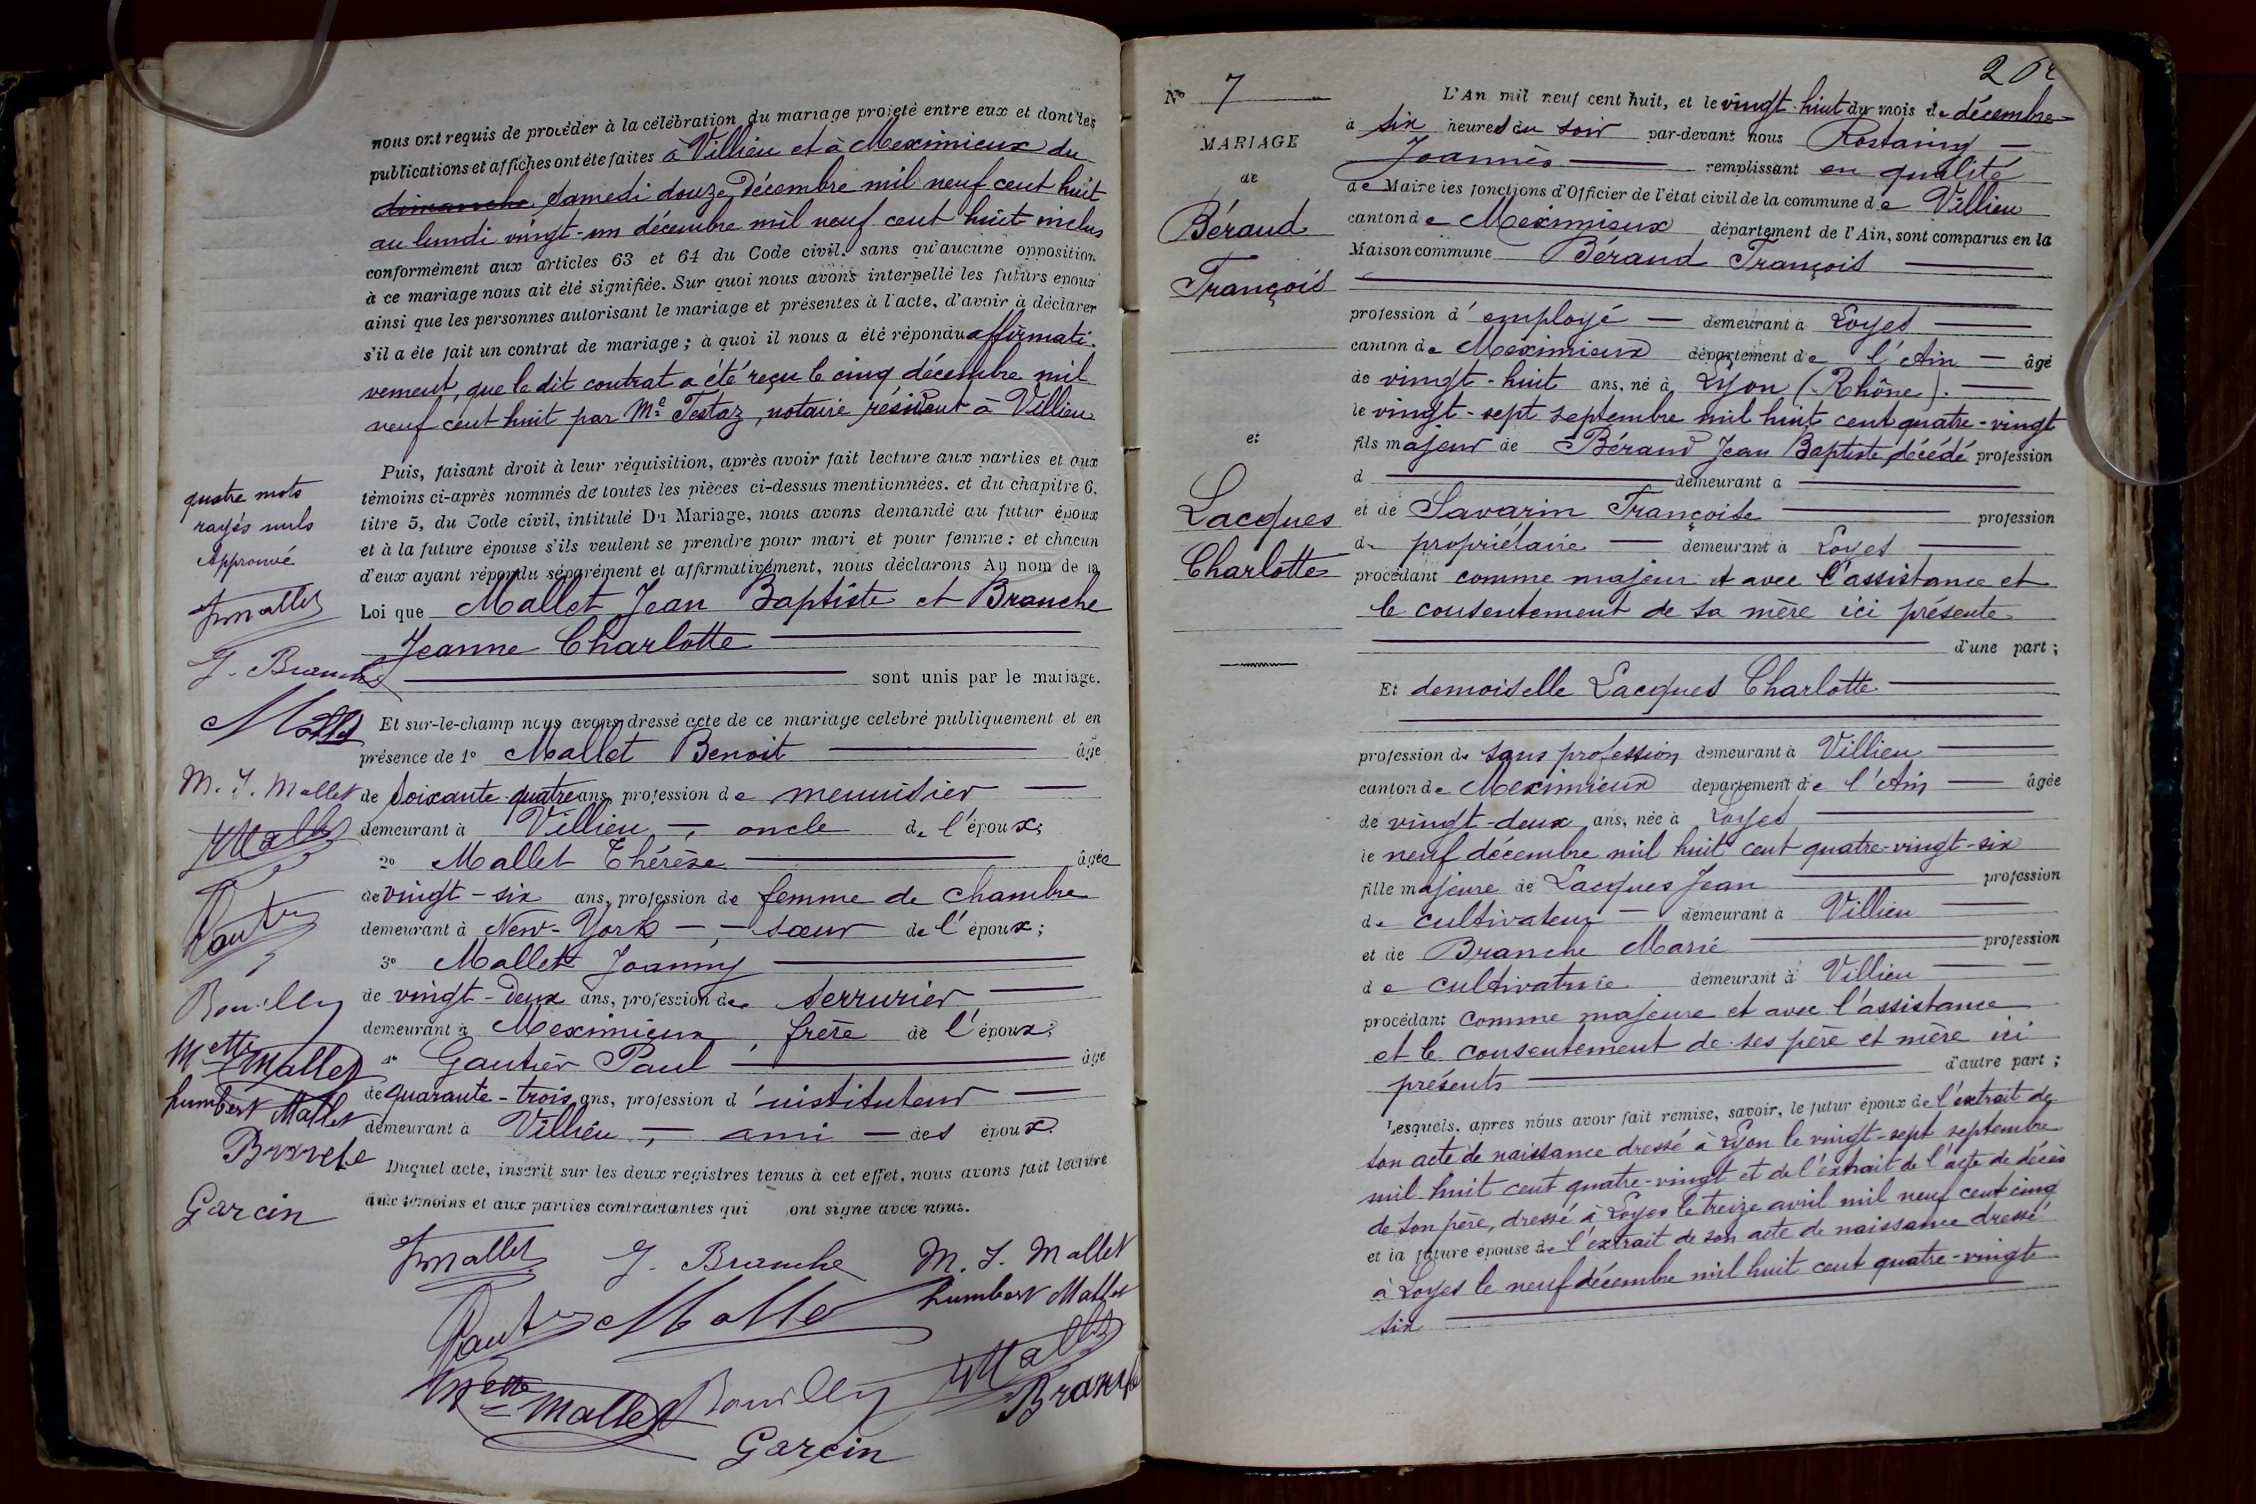 nous ont requis de procéder à la célébration du mariage projeté entre eux et dont les
publications et affiches ont été faites à Villieu et à Meximieux du
dimanche samedi douze décembre mil neuf cent huit
au lundi vingt-un décembre mil neuf cent huit inclus
conformément aux articles 63 et 64 du Code civil. sans qu'aucune opposition
à ce mariage nous ait été signifiée. Sur quoi nous avons interpellé les futurs époux
ainsi que les personnes autorisant le mariage et présentes à l'acte, d'avoir à déclarer
s'il a été fait un contrat de mariage ; à quoi il nous a été répondu affirmati-
vement, que le dit contrat a été reçu le cinq décembre mil
neuf cent huit par Me Testaz, notaire résident à Villieu
Puis, faisant droit à leur réquisition, après avoir fait lecture aux parties et aux
témoins ci-après nommés de toutes les pièces ci-dessus mentionnées. et du chapitre 6,
titre 5, du Code civil, intitulé Du Mariage, nous avons demandé au futur époux
et à la future épouse s'ils veulent se prendre pour mari et pour femme : et chacun
d'eux ayant répondu séparément et affirmativement, nous déclarons Au nom de la
Loi que Mallet Jean Baptiste et Branche
Jeanne Charlotte
sont unis par le mariage.
Et sur-le-champ nous avons dressé acte de ce mariage célébré publiquement et en
présence de 1o Mallet Benoit âgé
de soixante-quatre ans, profession de menuisier
demeurant à Villieu, oncle de l'époux;
2o Mallet Thérèse âgée
de vingt-six ans, profession de femme de chambre
demeurant à New-York, sœur de l'époux;
3o Mallet Joanny
de vingt-deux ans, profession de serrurier
demeurant à Meximieux, frère de l'époux;
4o Gautier Paul âgé
de quarante-trois ans, profession d'instituteur
demeurant à Villieu, ami des époux.
Duquel acte, inscrit sur les deux registres tenus à cet effet, nous avons fait lecture
aux témoins et aux parties contractantes qui ont signé avec nous.
quatre mots
rayés nuls
Approuvé
Jmallet
J. Branche
Mallet
M. J. Mallet
Mallet
Bouilly
Mette Mallet
humbert Mallet
Branche
Garcin
Jmallet J. Branche M. J. Mallet
Mallet humbert Mallet
Mette Mallet Bouilly Mallet
Branche
Garcin
No 7
MARIAGE
de
Béraud
François
et
Lacques
Charlotte
L'An mil neuf cent huit, et le vingt-huit du mois de décembre
à six heures du soir par-devant nous Rostaing
Joannès remplissant en qualité
de Maire les fonctions d'Officier de l'état civil de la commune de Villieu
canton de Meximieux département de l'Ain, sont comparus en la
Maison commune Béraud François
profession d'employé demeurant à Loyes
canton de Meximieux département de l'Ain âgé
de vingt-huit ans, né à Lyon (Rhône).
le vingt-sept septembre mil huit cent quatre-vingt
fils majeur de Béraud Jean Baptiste, décédé profession
d demeurant à
et de Savarin Françoise profession
de propriétaire demeurant à Loyes
procédant comme majeur et avec l'assistance et
le consentement de sa mère ici présente
d'une part ;
Et demoiselle Lacques Charlotte
profession de sans profession demeurant à Villieu
canton de Meximieux département de l'Ain âgée
de vingt-deux ans, née à Loyes
le neuf décembre mil huit cent quatre-vingt-six
fille majeure de Lacques Jean profession
de cultivateur demeurant à Villieu
et de Branche Marie profession
de cultivatrice demeurant à Villieu
procédant comme majeure et avec l'assistance
et le consentement de ses père et mère ici
présents d'autre part ;
Lesquels, après nous avoir fait remise, savoir, le futur époux de l'extrait de
son acte de naissance dressé à Lyon le vingt-sept septembre
mil huit cent quatre-vingt et de l'extrait de l'acte de décès
de son père, dressé à Loyes le treize avril mil neuf cent cinq
et la future épouse de l'extrait de son acte de naissance dressé
à Loyes le neuf décembre mil huit cent quatre-vingt
six